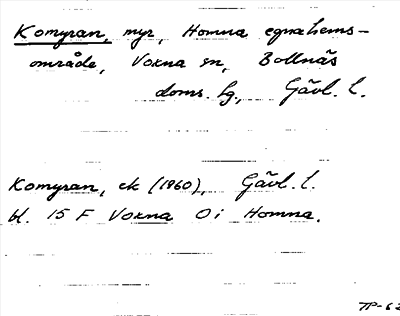 Komyran, myr, Homna egnahems-
område, Voxna sn, Bollnäs
doms. hg., Gävl. l.
Komyran, ek (1960), Gävl. l.
bl. 15 F Voxna Ö i Homna.
TP-62